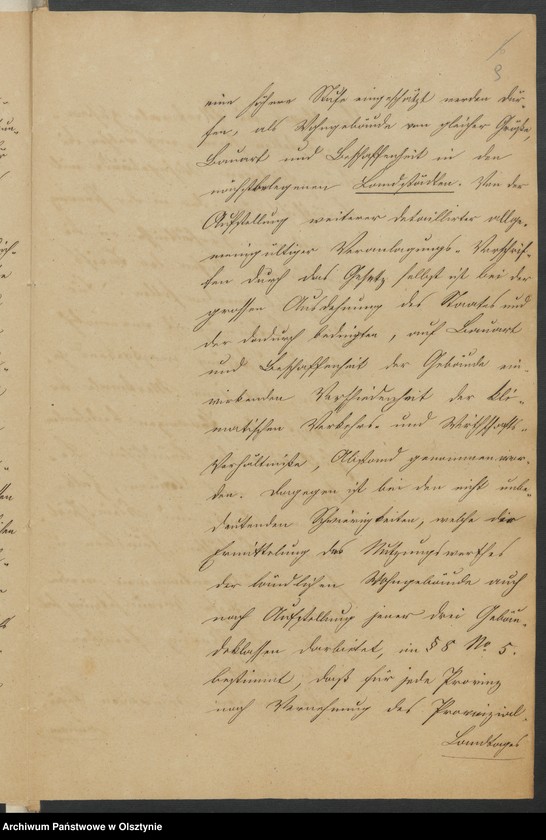 eine höhere Stufe eingeschätzt werden dür-
fen, als Wohngebäude von gleicher Größe,
Bauart und Beschaffenheit in den
nächstbelegenen Landstädten. Von der
Aufstellung weiterer detaillirter allge-
meingültiger Veranlagungs-Vorschrif-
ten durch das Gesetz selbst ist bei der
grossen Ausdehnung des Staates und
der dadurch bedingten, auf Bauart
und Beschaffenheit der Gebäude ein-
wirkenden Verschiedenheit der kli-
matischen Verkehrs- und Wirthschafts-
Verhältnisse, Abstand genommen wor-
den. Dagegen ist bei den nicht unbe-
deutenden Schwierigkeiten, welche die
Ermittelung des Nutzungswerthes
der ländlichen Wohngebäude auch
nach Aufstellung jener drei Gebäu-
deklassen darbietet, im § 8 No 5.
bestimmt, daß für jede Provinz
nach Vernehmung des Provinzial-
Landtages
Archiwum Państwowe w Olsztynie